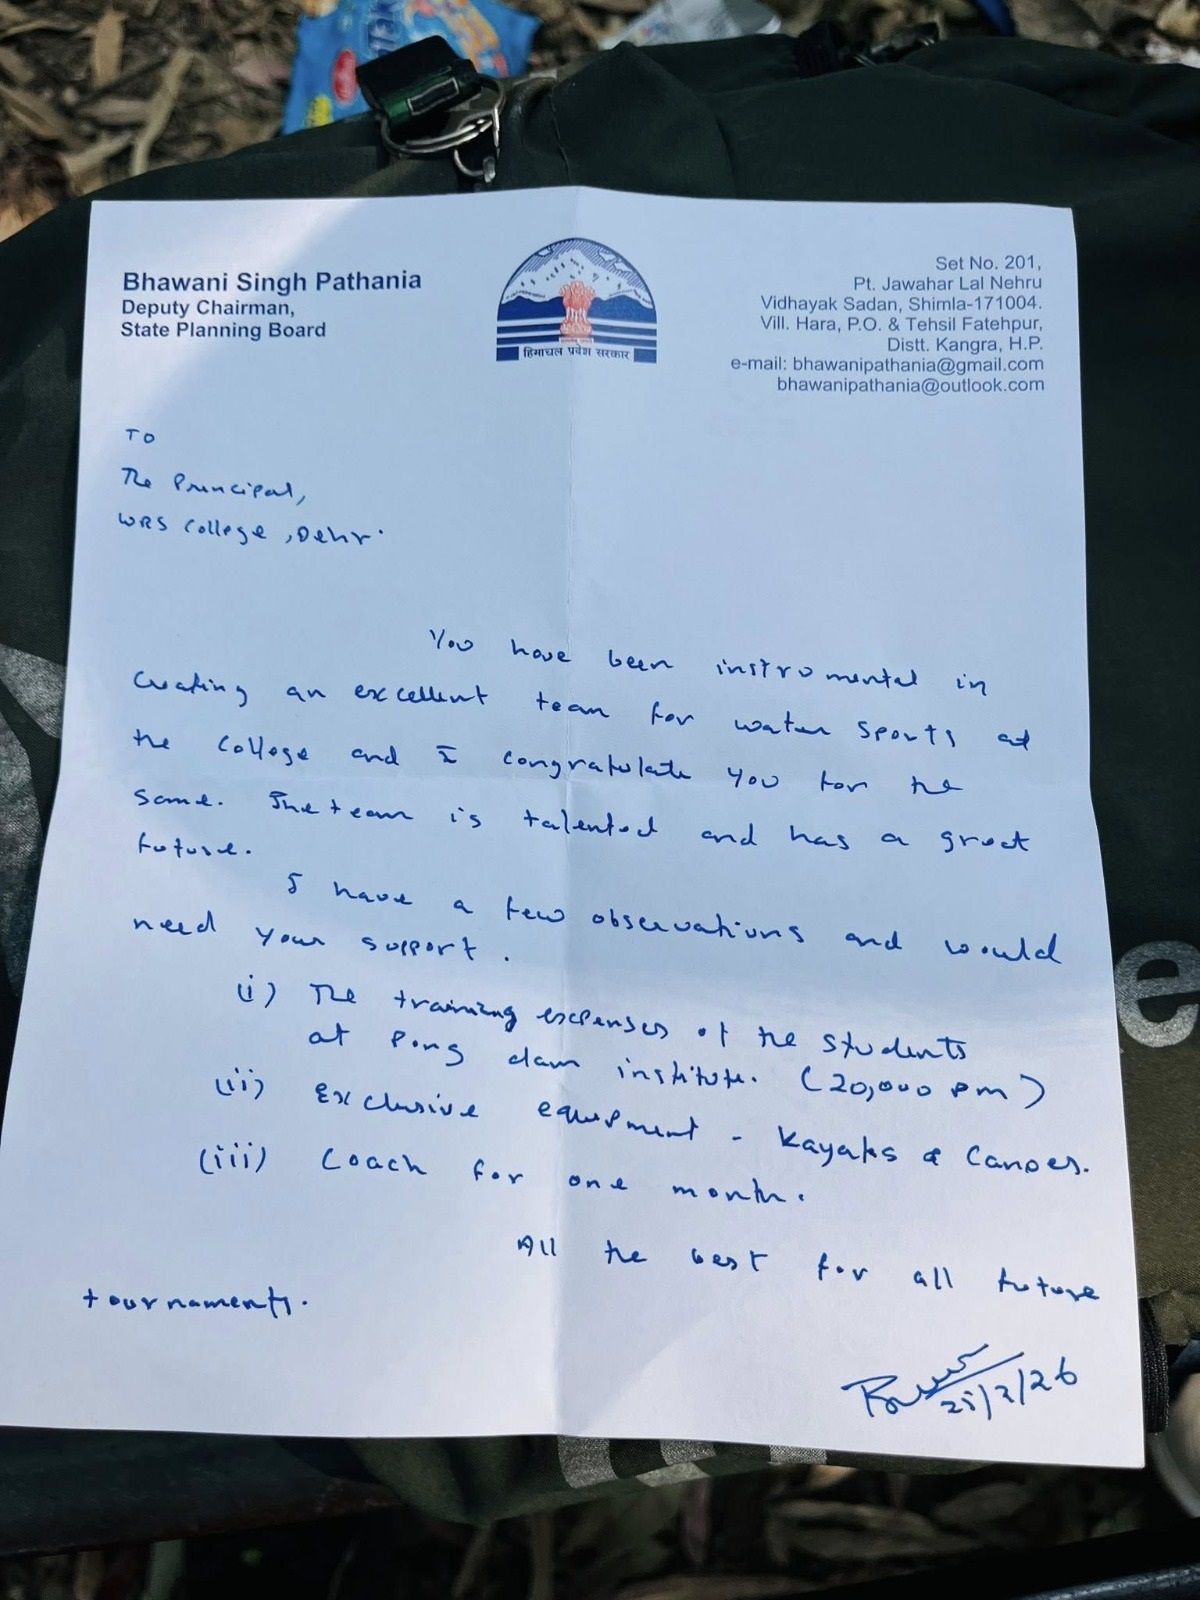 Bhawani Singh Pathania
Deputy Chairman,
State Planning Board
हिमाचल प्रदेश सरकार
Set No. 201,
Pt. Jawahar Lal Nehru
Vidhayak Sadan, Shimla-171004.
Vill. Hara, P.O. & Tehsil Fatehpur,
Distt. Kangra, H.P.
e-mail: bhawanipathania@gmail.com
bhawanipathania@outlook.com
To
The Principal,
WRS College, Dehr.
You have been instrumental in
creating an excellent team for water sports at
the college and I congratulate you for the
same. The team is talented and has a great
future.
I have a few observations and would
need your support.
(i) The training expenses of the students
at Pong dam institute. (20,000 pm)
(ii) Exclusive equipment - Kayaks & Canoes.
(iii) Coach for one month.
All the best for all future
tournaments.
25/2/26